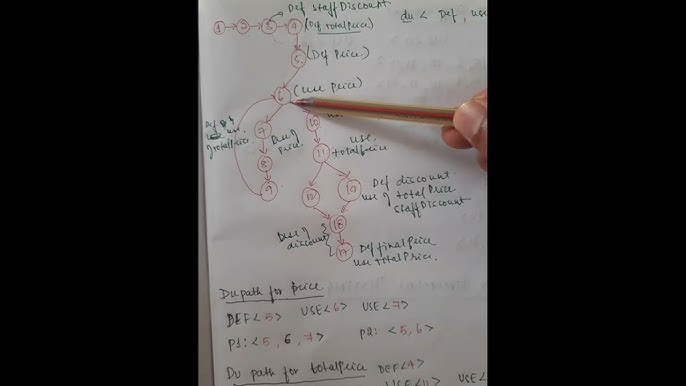 Def staffDiscount.
du < Def, use
1 2 3 4 (Def totalprice)
5 (Def Price.)
6 (use price)
7 use of price.
Def & use of totalprice
10
8
11 use totalprice
9
12
Def discount
use of totalPrice
staffDiscount
use of discount
16
17 Def finalprice
use totalPrice.
Du path for price
DEF<5> USE<6> USE<7>
P1: <5, 6, 7> P2: <5, 6>
Du path for totalprice DEF<4>
USE<11>